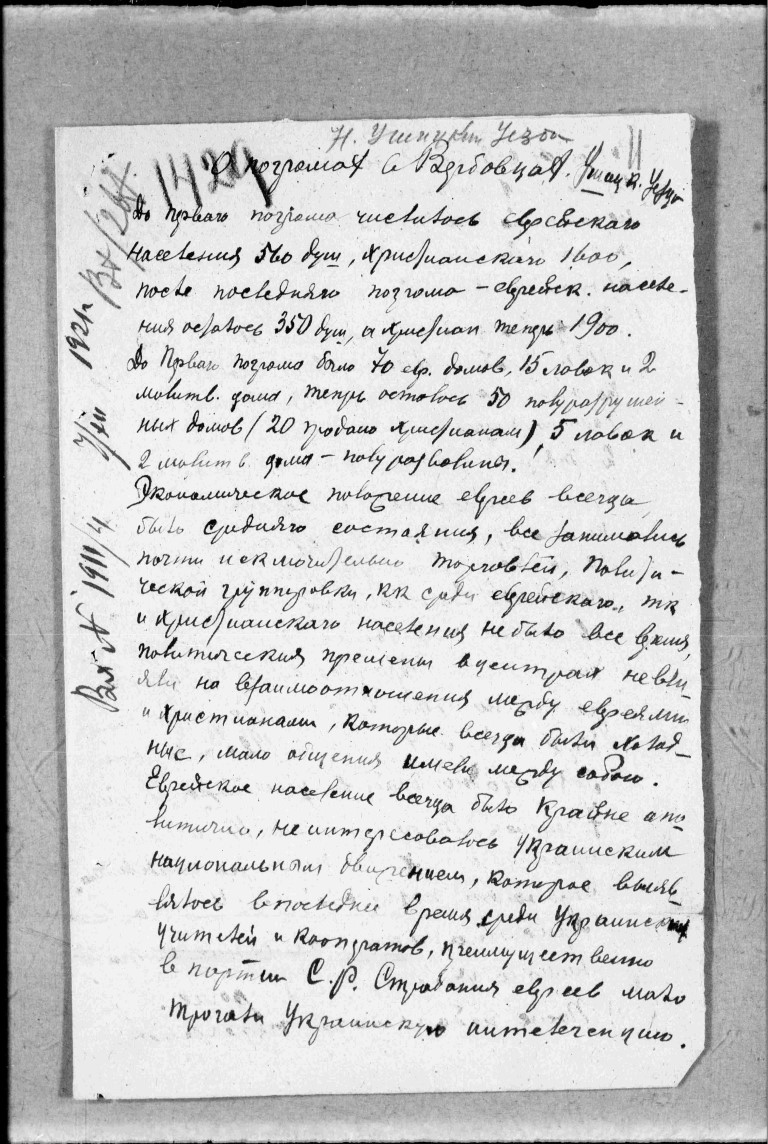 Н. Ушицкий Уезд
11
1429
О погромах в Вербовцах. Ушицк. Уезда
До перваго погрома числилось еврейскаго
населения 560 душ, христианскаго 1600,
после последняго погрома – еврейск. населе-
ния осталось 350 душ, а христиан теперь 1900.
До перваго погрома было 70 евр. домов, 15 лавок и 2
молитв. дома, теперь осталось 50 полуразрушен-
ных домов (20 продано христианам), 5 лавок и
2 молитв. дома – полуразвалины.
Экономическое положение евреев всегда
было средняго состояния, все занимались
почти исключительно торговлей, полити-
ческой группировки, как среди еврейскаго, так
и христианскаго населения не было все время,
политическия премены в центрах не вли-
яли на взаимоотношения между евреями
и христианами, которые всегда были холод-
ные, мало общения имели между собою.
Еврейское население всегда было крайне апо-
литично, не интересовалось украинским
национальным движением, которое выяв-
лялось в последнее время среди украинских
учителей и кооператоров, преимущественно
в партии С.Р. Страдания евреев мало
трогали украинскую интелегенцию.
Вх № 1911/4 1921